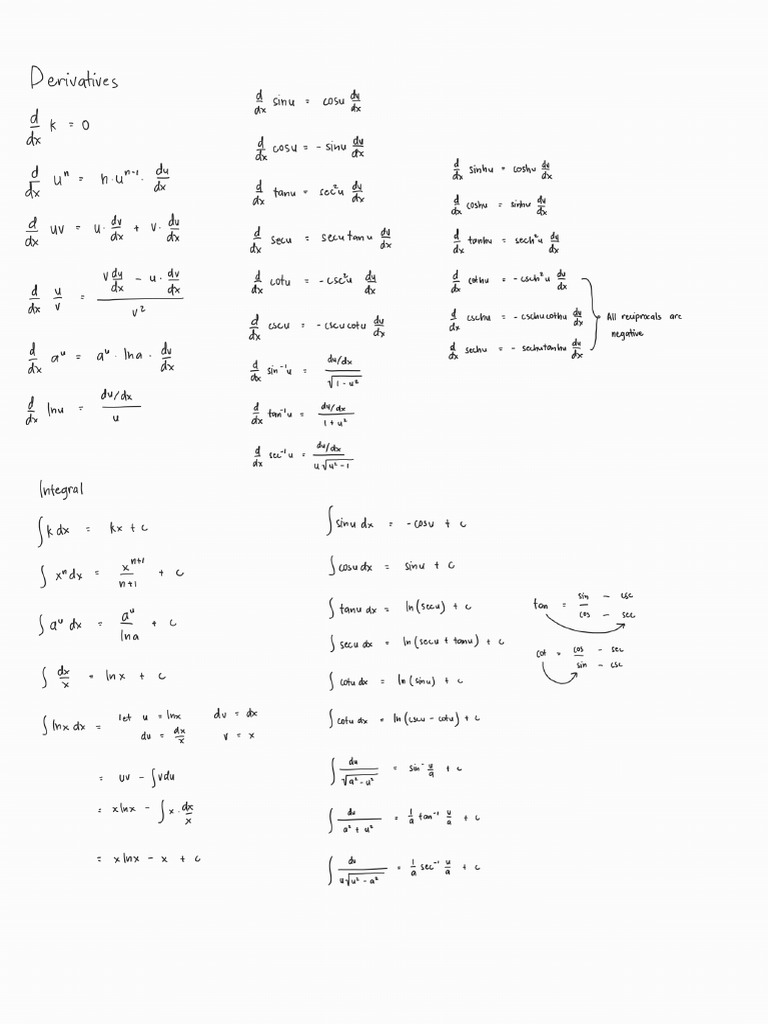 Derivatives
d/dx k = 0
d/dx uⁿ = n·uⁿ⁻¹· du/dx
d/dx uv = u· dv/dx + v· du/dx
d/dx u/v = (v du/dx − u· dv/dx) / v²
d/dx aᵘ = aᵘ· lna · du/dx
d/dx lnu = (du/dx) / u
d/dx sinu = cosu du/dx
d/dx cosu = -sinu du/dx
d/dx tanu = sec²u du/dx
d/dx secu = secu tanu du/dx
d/dx cotu = -csc²u du/dx
d/dx cscu = -cscu cotu du/dx
d/dx sin⁻¹u = (du/dx) / √(1-u²)
d/dx tan⁻¹u = (du/dx) / (1+u²)
d/dx sec⁻¹u = (du/dx) / (u√(u²-1))
d/dx sinhu = coshu du/dx
d/dx coshu = sinhu du/dx
d/dx tanhu = sech²u du/dx
d/dx cothu = -csch²u du/dx
d/dx cschu = -cschucothu du/dx
d/dx sechu = -sechutanhu du/dx
All reciprocals are
negative
Integral
∫k dx = kx + c
∫xⁿdx = xⁿ⁺¹/(n+1) + c
∫aᵘ dx = aᵘ/lna + c
∫dx/x = lnx + c
∫lnx dx = let u = lnx dv = dx
du = dx/x v = x
= uv − ∫vdu
= xlnx − ∫x·dx/x
= xlnx − x + c
∫sinu dx = -cosu + c
∫cosu dx = sinu + c
∫tanu dx = ln(secu) + c
∫secu dx = ln(secu + tanu) + c
∫cotu dx = ln(sinu) + c
∫cotu dx = ln(cscu − cotu) + c
∫du/√(a²-u²) = sin⁻ u/a + c
∫du/(a²+u²) = 1/a tan⁻¹ u/a + c
∫du/(u√(u²-a²)) = 1/a sec⁻¹ u/a + c
tan = sin − csc
cos − sec
cot = cos − sec
sin − csc